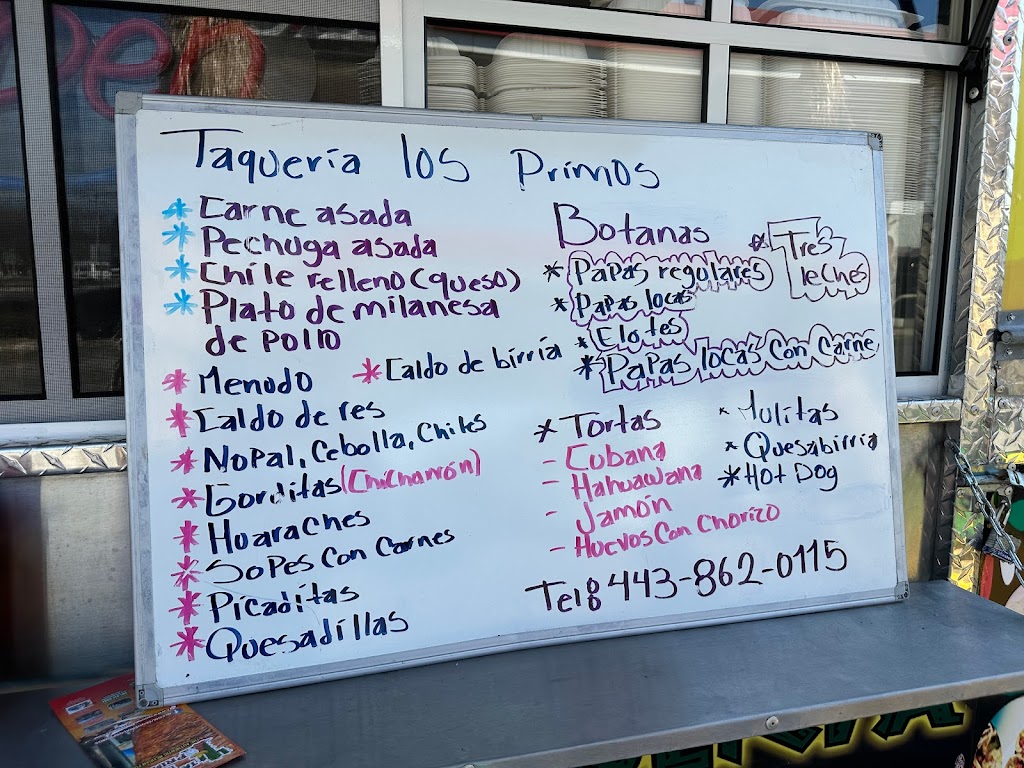 Taquería los Primos
* Carne asada
* Pechuga asada
* Chile relleno (queso)
* Plato de milanesa
de pollo
* Menudo
* Caldo de birria
* Caldo de res
* Nopal, Cebolla, Chiles
* Gorditas (Chicharrón)
* Huaraches
* Sopes con Carnes
* Picaditas
* Quesadillas
Botanas
* Papas regulares
* Papas locas
* Elotes
* Papas locas con Carne
* Tres
leches
* Tortas
- Cubana
- Hahuawana
- Jamón
- Huevos con chorizo
* Mulitas
* Quesabirria
* Hot Dog
Tel: 443-862-0115